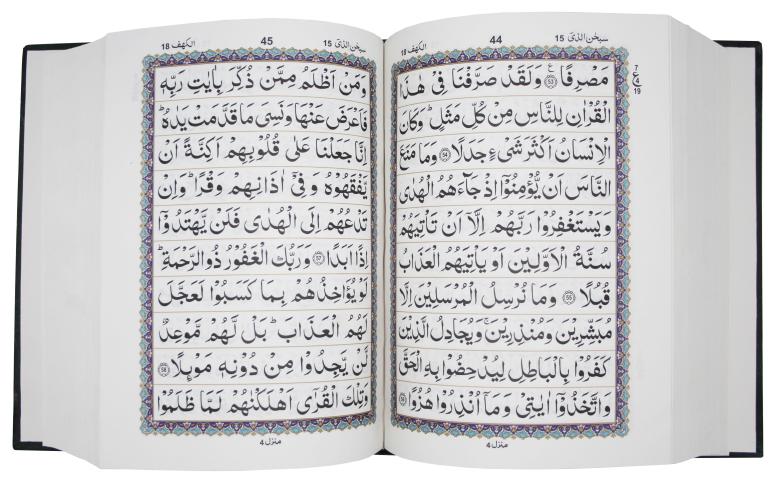 سبحٰن الذی ١٥
44
الکهف 18
مَصْرِفًا ۵۳ وَلَقَدْ صَرَّفْنَا فِیْ هٰذَا
الْقُرْاٰنِ لِلنَّاسِ مِنْ كُلِّ مَثَلٍ ؕ وَكَانَ
الْاِنْسَانُ اَكْثَرَ شَیْءٍ جَدَلًا ۵۴ وَمَا مَنَعَ
النَّاسَ اَنْ یُّؤْمِنُوْۤا اِذْ جَآءَهُمُ الْهُدٰی
وَیَسْتَغْفِرُوْا رَبَّهُمْ اِلَّاۤ اَنْ تَاْتِیَهُمْ
سُنَّةُ الْاَوَّلِیْنَ اَوْ یَاْتِیَهُمُ الْعَذَابُ
قُبُلًا ۵۵ وَمَا نُرْسِلُ الْمُرْسَلِیْنَ اِلَّا
مُبَشِّرِیْنَ وَمُنْذِرِیْنَ ۚ وَیُجَادِلُ الَّذِیْنَ
كَفَرُوْا بِالْبَاطِلِ لِیُدْحِضُوْا بِهِ الْحَقَّ
وَاتَّخَذُوْۤا اٰیٰتِیْ وَمَاۤ اُنْذِرُوْا هُزُوًا ۵۶
منزل 4
7
ع
4
19
سبحٰن الذی 15
45
الکهف 18
وَمَنْ اَظْلَمُ مِمَّنْ ذُكِّرَ بِاٰیٰتِ رَبِّهٖ
فَاَعْرَضَ عَنْهَا وَنَسِیَ مَا قَدَّمَتْ یَدٰهُ ؕ
اِنَّا جَعَلْنَا عَلٰی قُلُوْبِهِمْ اَكِنَّةً اَنْ
یَّفْقَهُوْهُ وَفِیْۤ اٰذَانِهِمْ وَقْرًا ؕ وَاِنْ
تَدْعُهُمْ اِلَی الْهُدٰی فَلَنْ یَّهْتَدُوْۤا
اِذًا اَبَدًا ۵۷ وَرَبُّكَ الْغَفُوْرُ ذُو الرَّحْمَةِ ؕ
لَوْ یُؤَاخِذُهُمْ بِمَا كَسَبُوْا لَعَجَّلَ
لَهُمُ الْعَذَابَ ؕ بَلْ لَّهُمْ مَّوْعِدٌ
لَّنْ یَّجِدُوْا مِنْ دُوْنِهٖ مَوْىِٕلًا ۵۸
وَتِلْكَ الْقُرٰۤی اَهْلَكْنٰهُمْ لَمَّا ظَلَمُوْا
منزل 4